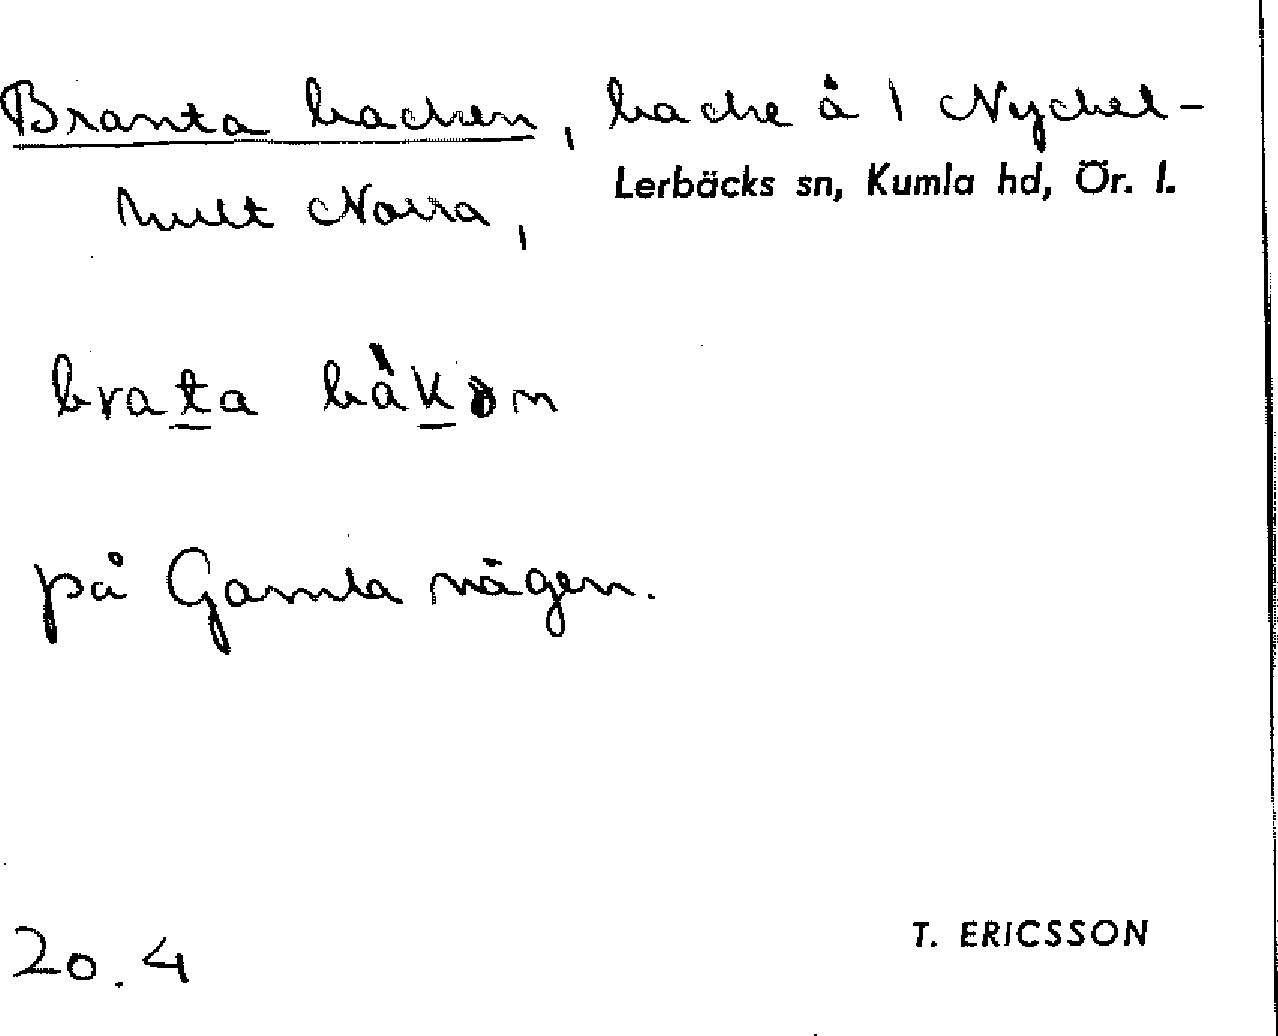 Branta backen, backe å 1 Nyckel-
Lerbäcks sn, Kumla hd, Ör. l.
hult Norra,
brata bàkən
på Gamla vägen.
20.4
T. ERICSSON